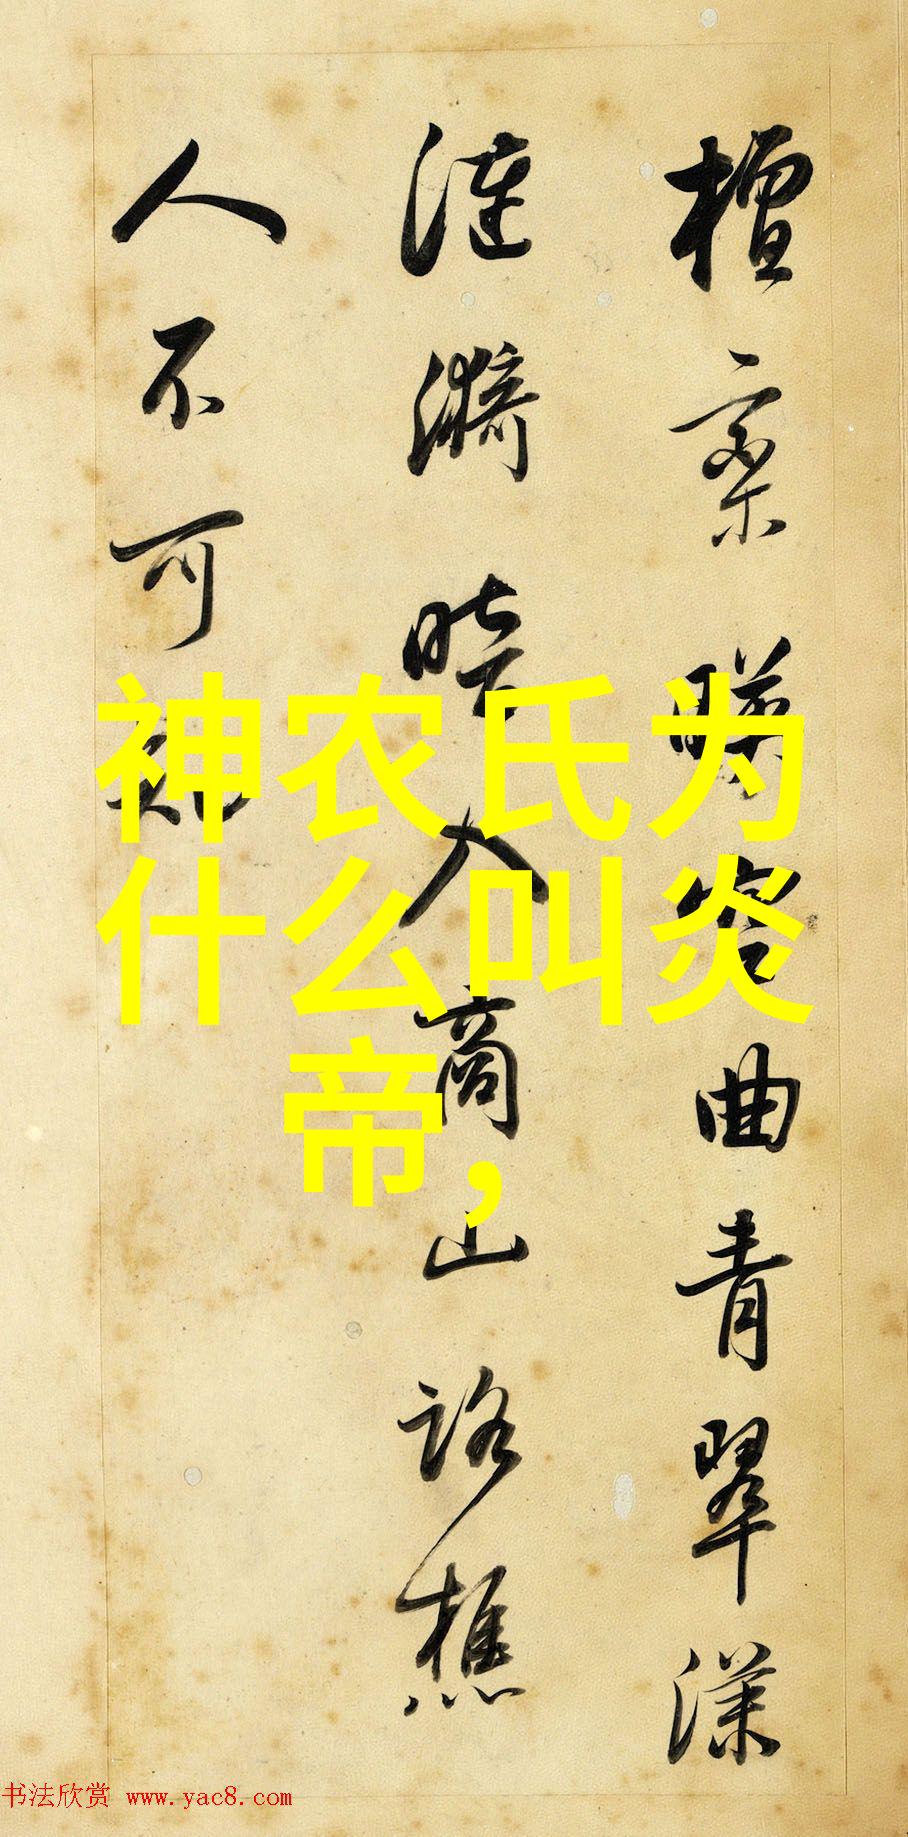 檀栾映空曲青翠漾
涟漪暗入商山路樵
人不可知
神农氏为
什么叫炎
帝,
书法欣赏 www.yac8.com